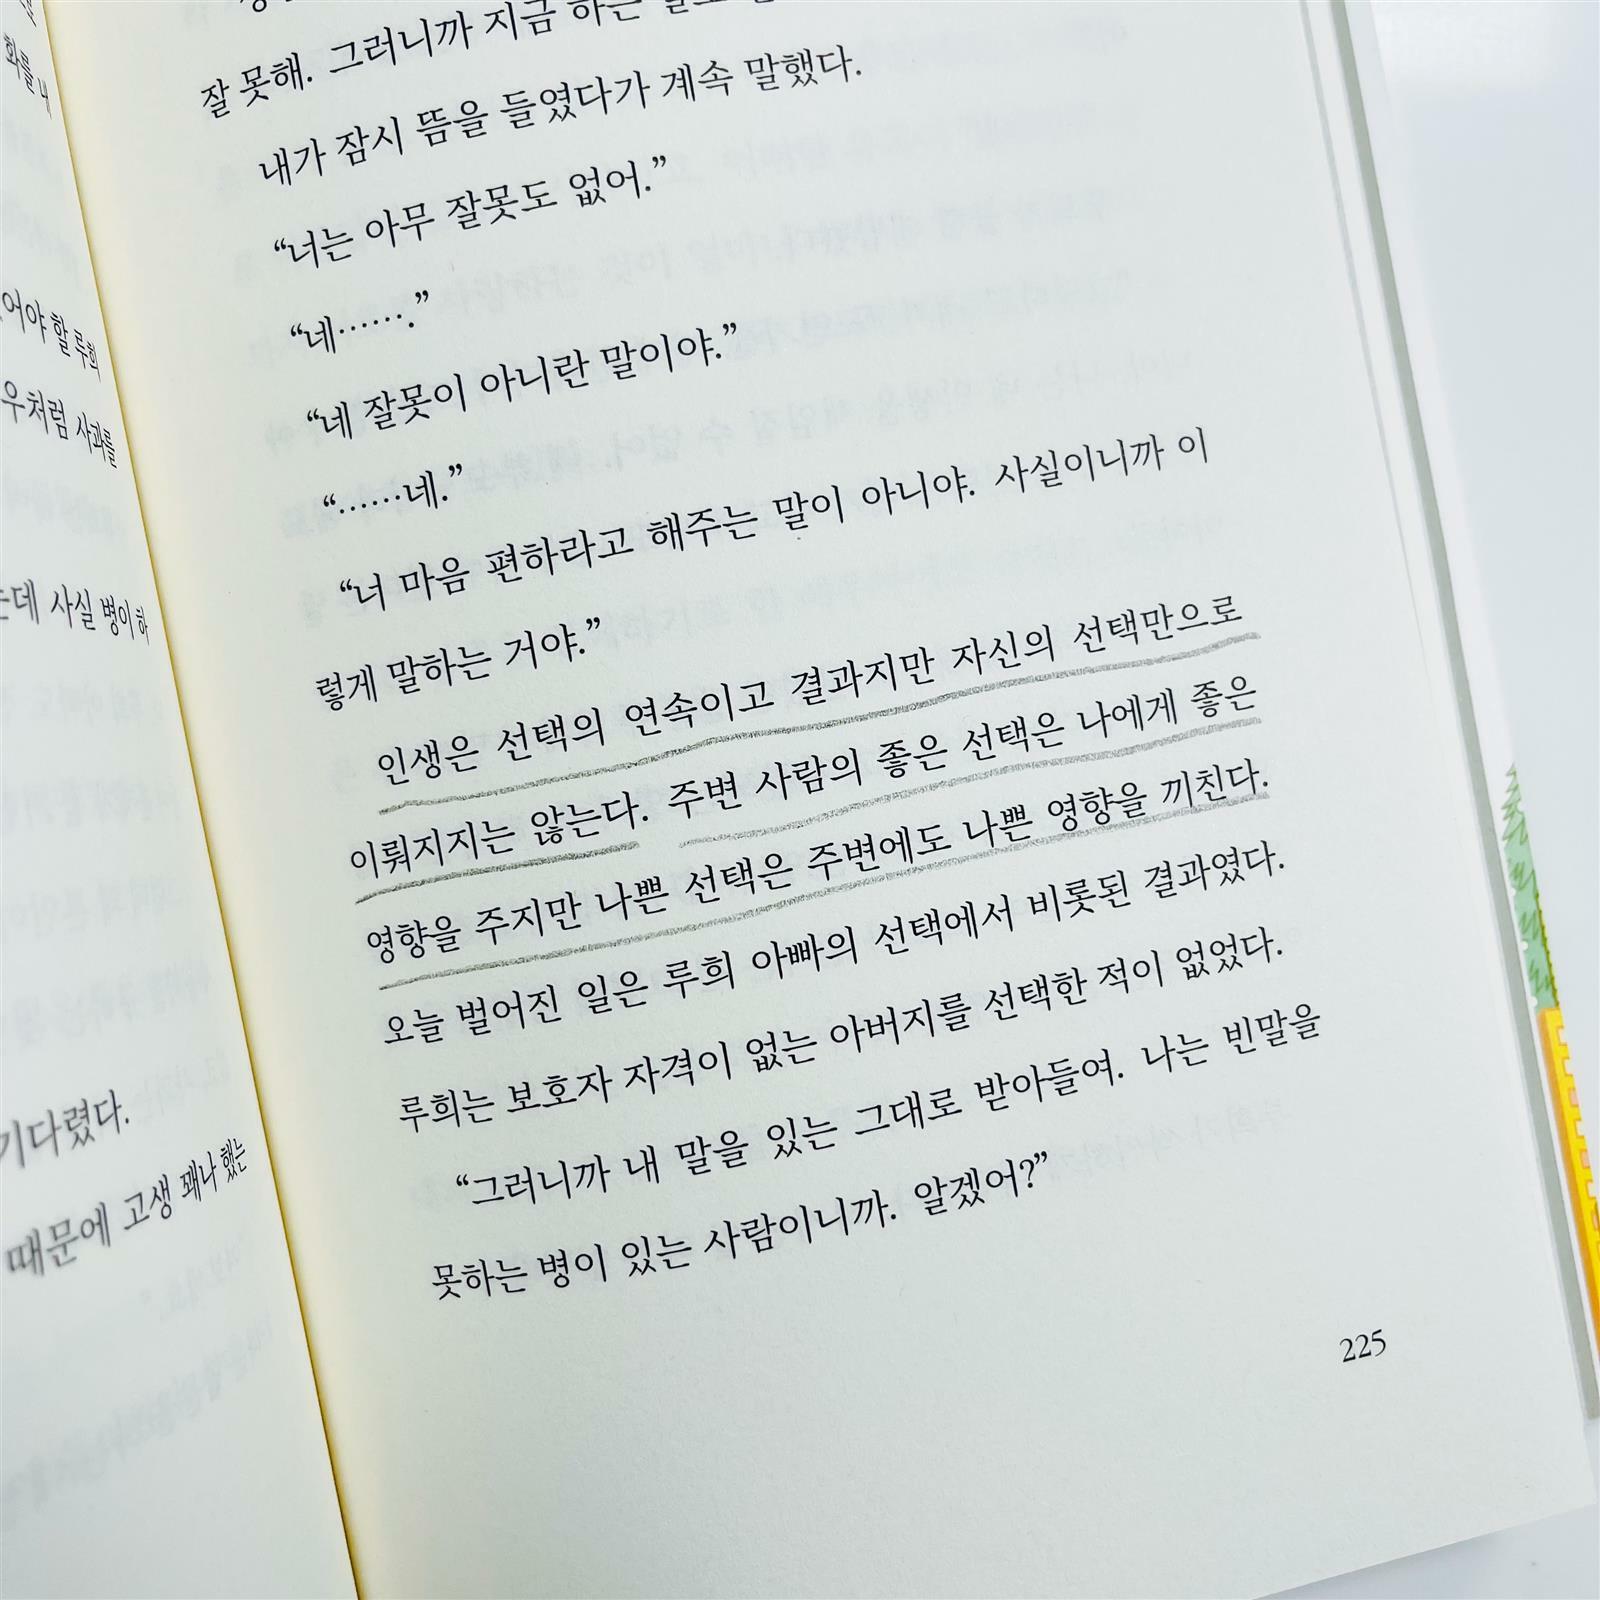 화를 내
어야 할 루희
우처럼 사과를
데 사실 병이 하
기다렸다.
때문에 고생 꽤나 했는
잘 못해. 그러니까 지금 하는
내가 잠시 뜸을 들였다가 계속 말했다.
“너는 아무 잘못도 없어.”
“네…….”
“네 잘못이 아니란 말이야.”
“……네.”
“너 마음 편하라고 해주는 말이 아니야. 사실이니까 이
렇게 말하는 거야.”
인생은 선택의 연속이고 결과지만 자신의 선택만으로
이뤄지지는 않는다. 주변 사람의 좋은 선택은 나에게 좋은
영향을 주지만 나쁜 선택은 주변에도 나쁜 영향을 끼친다.
오늘 벌어진 일은 루희 아빠의 선택에서 비롯된 결과였다.
루희는 보호자 자격이 없는 아버지를 선택한 적이 없었다.
“그러니까 내 말을 있는 그대로 받아들여. 나는 빈말을
못하는 병이 있는 사람이니까. 알겠어?”
225